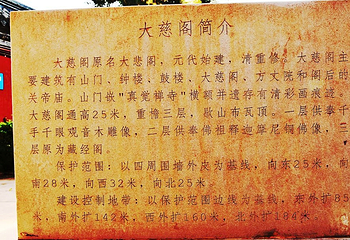 大慈阁简介
大慈阁原名大悲阁，元代始建，清重修。大慈阁主
要建筑有山门、钟楼、鼓楼、大慈阁、方丈院和阁后的
关帝庙。山门嵌"真觉禅寺"横额并遗存有清彩画痕迹。
大慈阁通高25米，重檐三层，歇山布瓦顶。一层供奉千
手千眼观音木雕像，二层供奉佛相释迦牟尼铜佛像，三
层原为藏经阁。
保护范围：以四周围墙外皮为基线，向东25米，向
南28米，向西32米，向北25米。
建设控制地带：以保护范围边线为基线，东外扩85
米，南外扩142米，西外扩160米，北外扩184米。